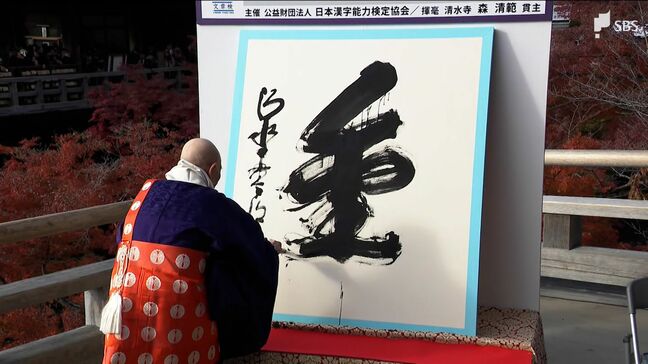 文章検
主催 公益財団法人 日本漢字能力検定協会／揮毫 清水寺 森 清範 貫主
SBS
金